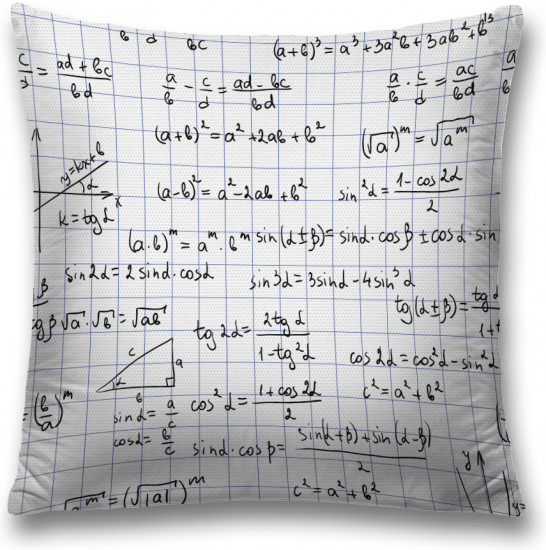 b d bc
(a+b)³ = a³+3a²b+3ab²+b³
c/d = (ad+bc)/bd
a/b - c/d = (ad-bc)/bd
a/b · c/d = ac/bd
(a+b)² = a²+2ab+b²
(√a)ᵐ = √aᵐ
y=kx+b
α
x
k=tgα
(a-b)² = a²-2ab+b²
sin²α = (1-cos2α)/2
(a·b)ᵐ = aᵐ·bᵐ
sin(α±β) = sinα·cosβ ± cosα·sin
sin2α = 2sinα·cosα
sin3α = 3sinα-4sin³α
β
tg(α±β) = tgα
1+t
gβ
√a·√b = √ab
tg2α = 2tgα/(1-tg²α)
cos2α = cos²α-sin²α
c
a
α
b
c² = a²+b²
= (b/a)ᵐ
sinα = a/c
cos²α = (1+cos2α)/2
cosα = b/c
sinα·cosβ = (sin(α+β)+sin(α-β))/2
y
√aᵐ = (√|a|)ᵐ
c² = a²+b²
y=